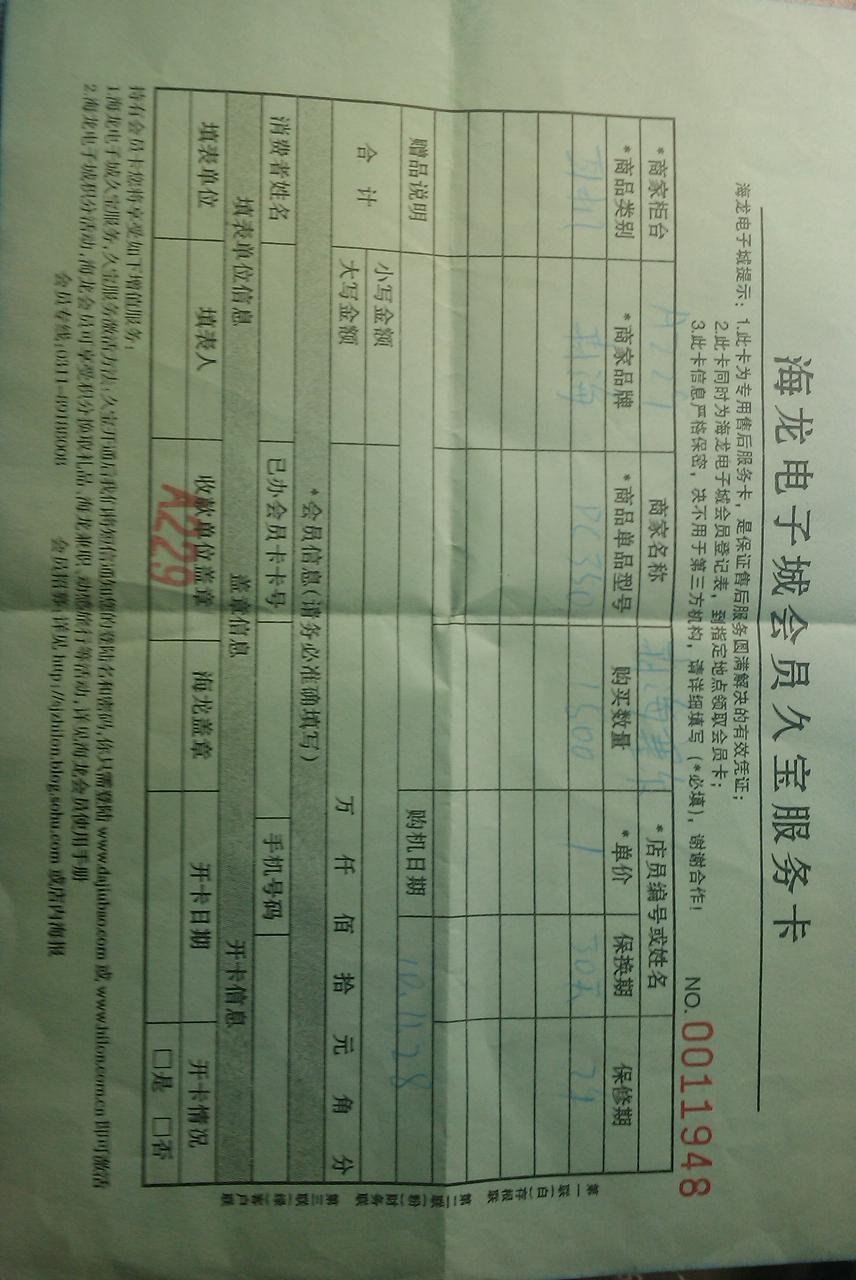 海龙电子城会员久宝服务卡
海龙电子城提示：1.此卡为专用售后服务卡，是保证售后服务圆满解决的有效凭证；
2.此卡同时为海龙电子城会员登记表，到指定地点领取会员卡；
3.此卡信息严格保密，决不用于第三方机构，请详细填写（*必填），谢谢合作！
NO.0011948
*商家柜台 A229 商家名称 *店员编号或姓名
*商品类别 *商家品牌 *商品单品型号 购买数量 *单价 保换期 保修期
1500 1 30天
赠品说明 购机日期 10.11.28
合计 小写金额
大写金额 万 仟 佰 拾 元 角 分
*会员信息（请务必准确填写）
消费者姓名 已办会员卡卡号 手机号码
填表单位信息 盖章信息 开卡信息
填表单位 填表人 收款单位盖章 海龙盖章 开卡日期 开卡情况
A229 □是 □否
持有会员卡您将享受如下增值服务：
1.海龙电子城久宝服务,久宝服务激活方法:久宝开通后我们将短信通知您的登陆名和密码,你只需登陆 www.dajiubao.com 或 www.hilon.com.cn 即可激活
2.海龙电子城积分活动,海龙会员可享受积分换取礼品,海龙兼职,动感旅行等活动,详见海龙会员使用手册
会员专线:0311-89188008 会员招募:详见 http://sjzhilon.blog.sohu.com 或店内海报
第一联（白）存根联 第二联（粉）财务联 第三联（绿）客户联